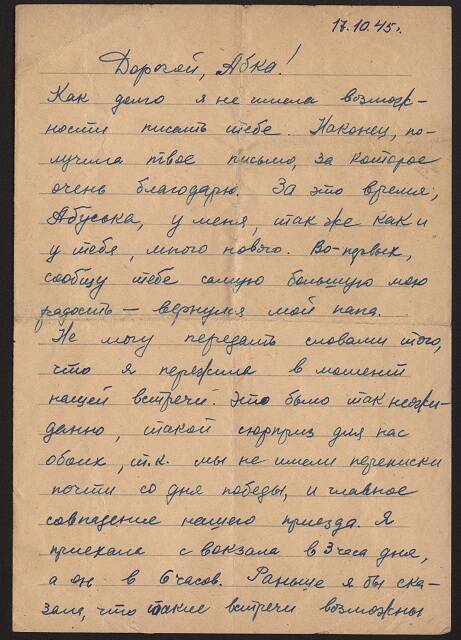 17.10.45г.
Дорогой, Абка!
Как долго я не имела возмож-
ности писать тебе. Наконец, по-
лучила твое письмо, за которое
очень благодарю. За это время,
Абуська, у меня, так же как и
у тебя, много нового. Во-первых,
сообщу тебе самую большую мою
радость — вернулся мой папа.
Не могу передать словами того,
что я пережила в момент
нашей встречи. Это было так неожи-
данно, такой сюрприз для нас
обоих, т.к. мы не имели переписки
почти со дня победы, и главное
совпадение нашего приезда. Я
приехала с вокзала в 3 часа дня,
а он в 6 часов. Раньше я бы ска-
зала, что такие встречи возможны